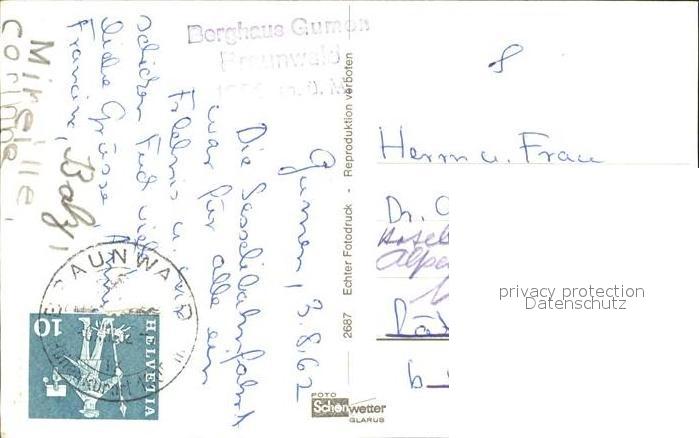 Berghaus Gumen
Braunwald
Gumen, 3.8.62
Die Sesselbahnfahrt
war für alle ein
Erlebnis u. wir
schicken Euch viele
liebe Grüsse,
Francine,
Mireille,
Corinne
BRAUNWALD
HELVETIA
10
2687 Echter Fotodruck - Reproduktion verboten
FOTO
Schönwetter
GLARUS
8
Herrn u. Frau
Dr.
Hotel
privacy protection
Datenschutz